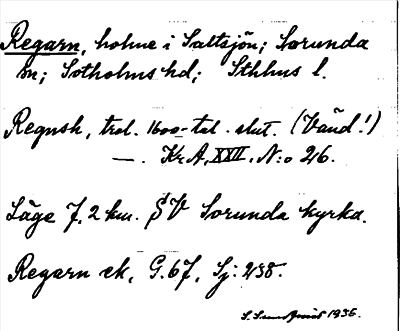 Regarn, holme i Saltsjön; Sorunda
sn; Sotholms hd; Sthlms l.
Regnsh, trol. 1600-tal. slut. (Vänd!)
—. Kr.A, XXII. N:o 26.
Läge 7,2 km. SV Sorunda kyrka.
Regarn ek, G.67, Sj: 238.
1936.